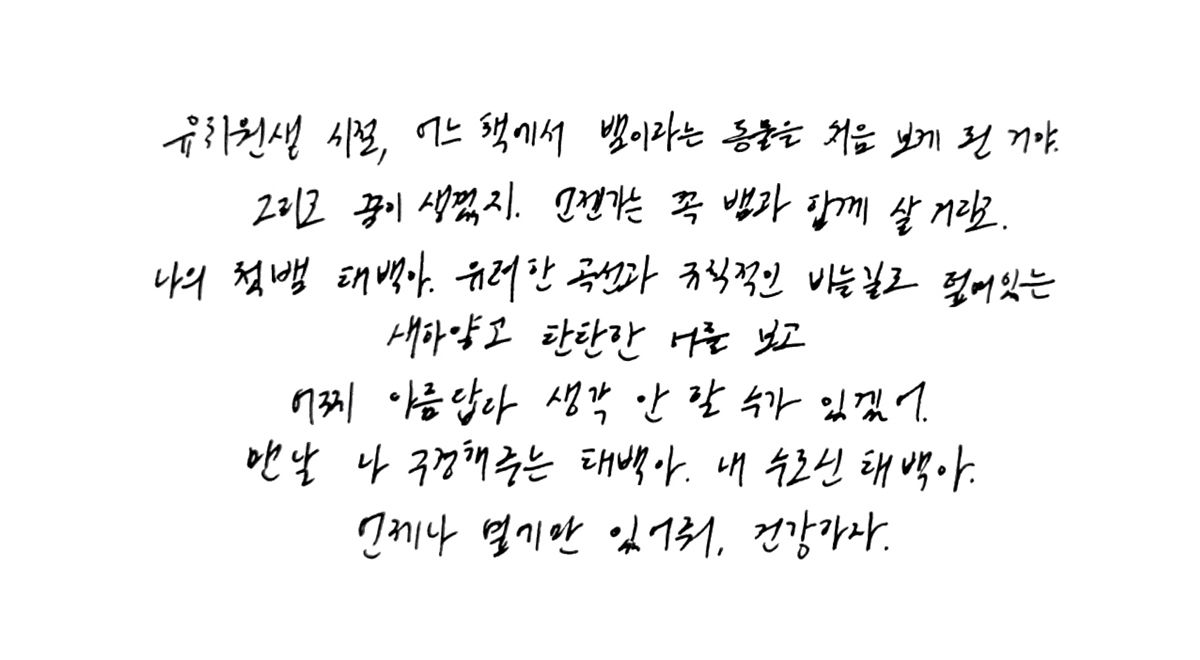 유치원생 시절, 어느 책에서 뱀이라는 동물을 처음 보게 된 거야.
그리고 꿈이 생겼지. 언젠가는 꼭 뱀과 함께 살 거라고.
나의 첫뱀 태백아. 유려한 곡선과 규칙적인 비늘길로 덮여있는
새하얗고 탄탄한 너를 보고
어찌 아름답다 생각 안 할 수가 있겠어.
맨날 나 구경해주는 태백아. 내 수호신 태백아.
언제나 옆에만 있어줘, 건강하자.